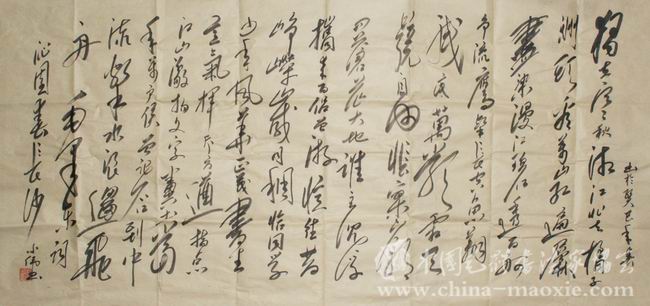 獨立寒秋湘江北去橘子
洲頭看萬山紅遍層
林盡染漫江碧透百舸
争流鷹擊長空魚翔
淺底萬類霜天
競自由悵寥廓
問蒼茫大地誰主沉浮
携来百侣曾游憶往昔
峥嶸歲月稠恰同學
少年風華正茂書生
意氣揮斥方遒指點
江山激揚文字糞土當
年萬户侯曾記否到中
流擊水浪遏飛
舟 毛澤東詞
沁園春長沙
www.china-maoxie.com